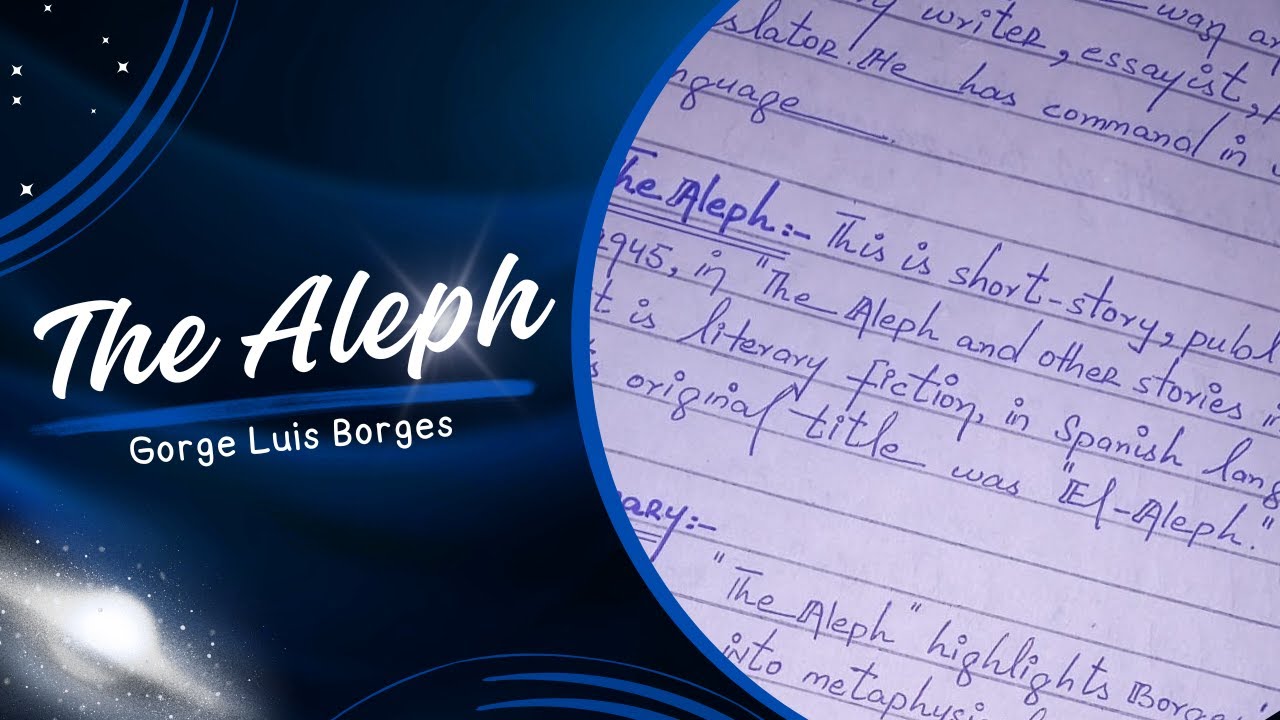 The Aleph
Gorge Luis Borges
was
writer, essayist,
He has command in
The Aleph:- This is short-story,
1945, in "The Aleph and other stories"
is literary fiction, in Spanish
original title was "El-Aleph."
"The Aleph" highlights
into